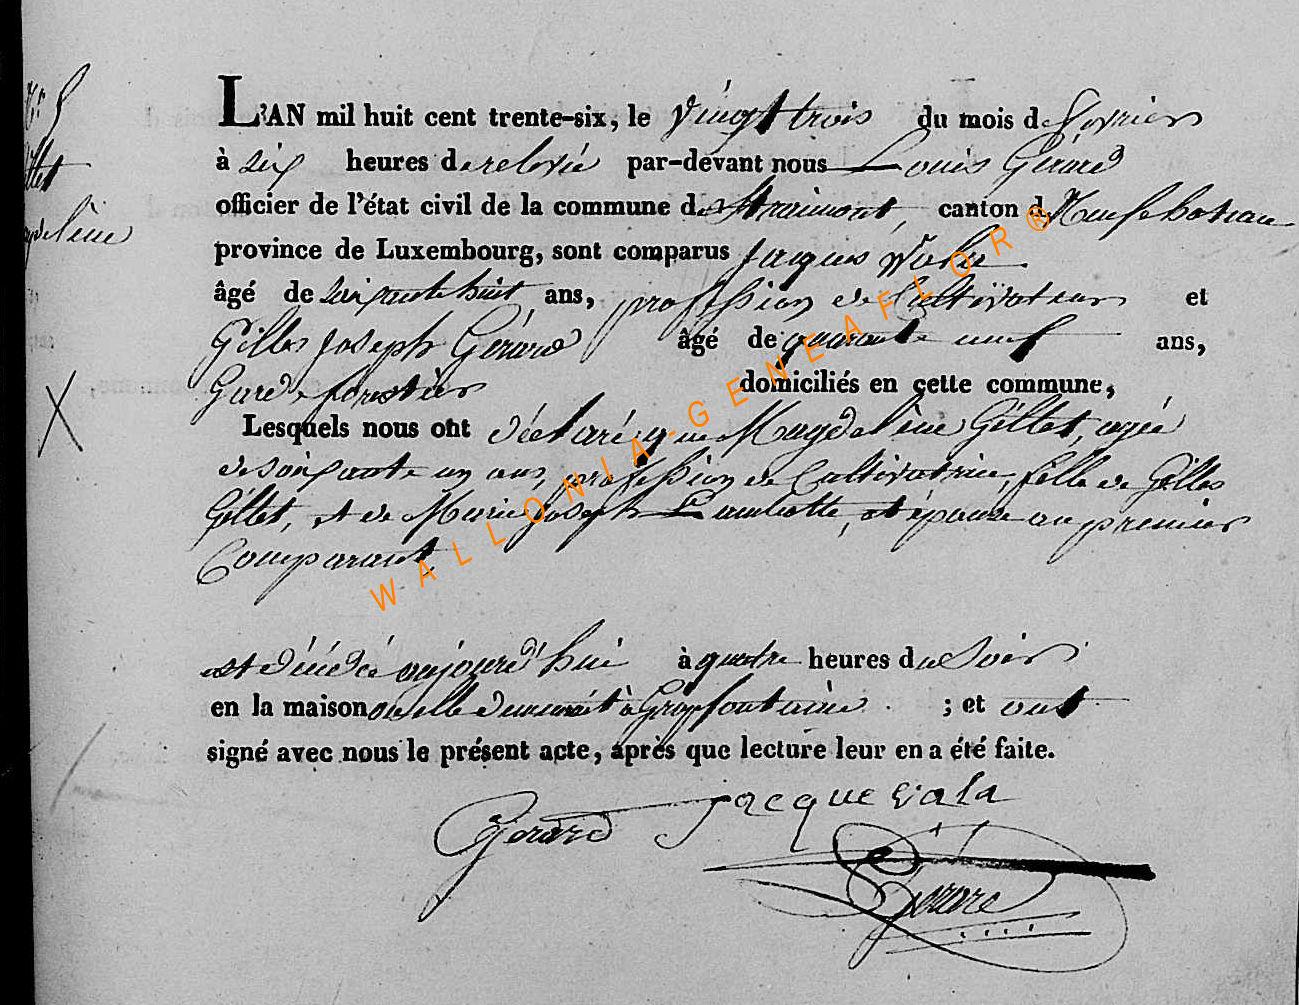 N.° 5
Gillet
Magdelène
L'AN mil huit cent trente-six, le vingt trois du mois de février
à six heures de relevée par-devant nous Louis Gérard
officier de l'état civil de la commune de Straimont, canton de Neufchateau
province de Luxembourg, sont comparus Jacques
âgé de soixante huit ans, profession de Cultivateur et
Gilles Joseph Gérard âgé de quarante neuf ans,
Garde forestier domiciliés en cette commune,
Lesquels nous ont déclaré que Magdelène Gillet, agée
de soixante un ans, profession de Cultivatrice, fille de Gilles
Gillet, et de Marie Joseph et épouse au premier
Comparant,
est décédée aujourd'hui à quatre heures du Soir
en la maison ou elle demeurait à Grapfontaine ; et ont
signé avec nous le présent acte, après que lecture leur en a été faite.
Gerard Jacque Viala
Gerard
WALLONIA-GENEAFLOR®